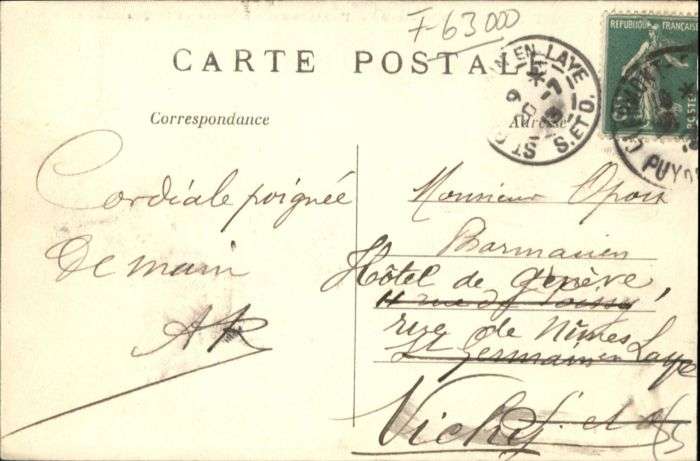 F-63000
CARTE POSTALE
EN LAYE
9 * -7
20
S. ET O.
REPUBLIQUE FRANÇAISE
POSTES
PUY
Correspondance
Adresse
Cordiale poignée
De main
AR
Monsieur
Pharmacien
Hôtel de Genève,
4 rue de Poissy
rue de Nîmes
St Germain en Laye
Vichy
S. et O